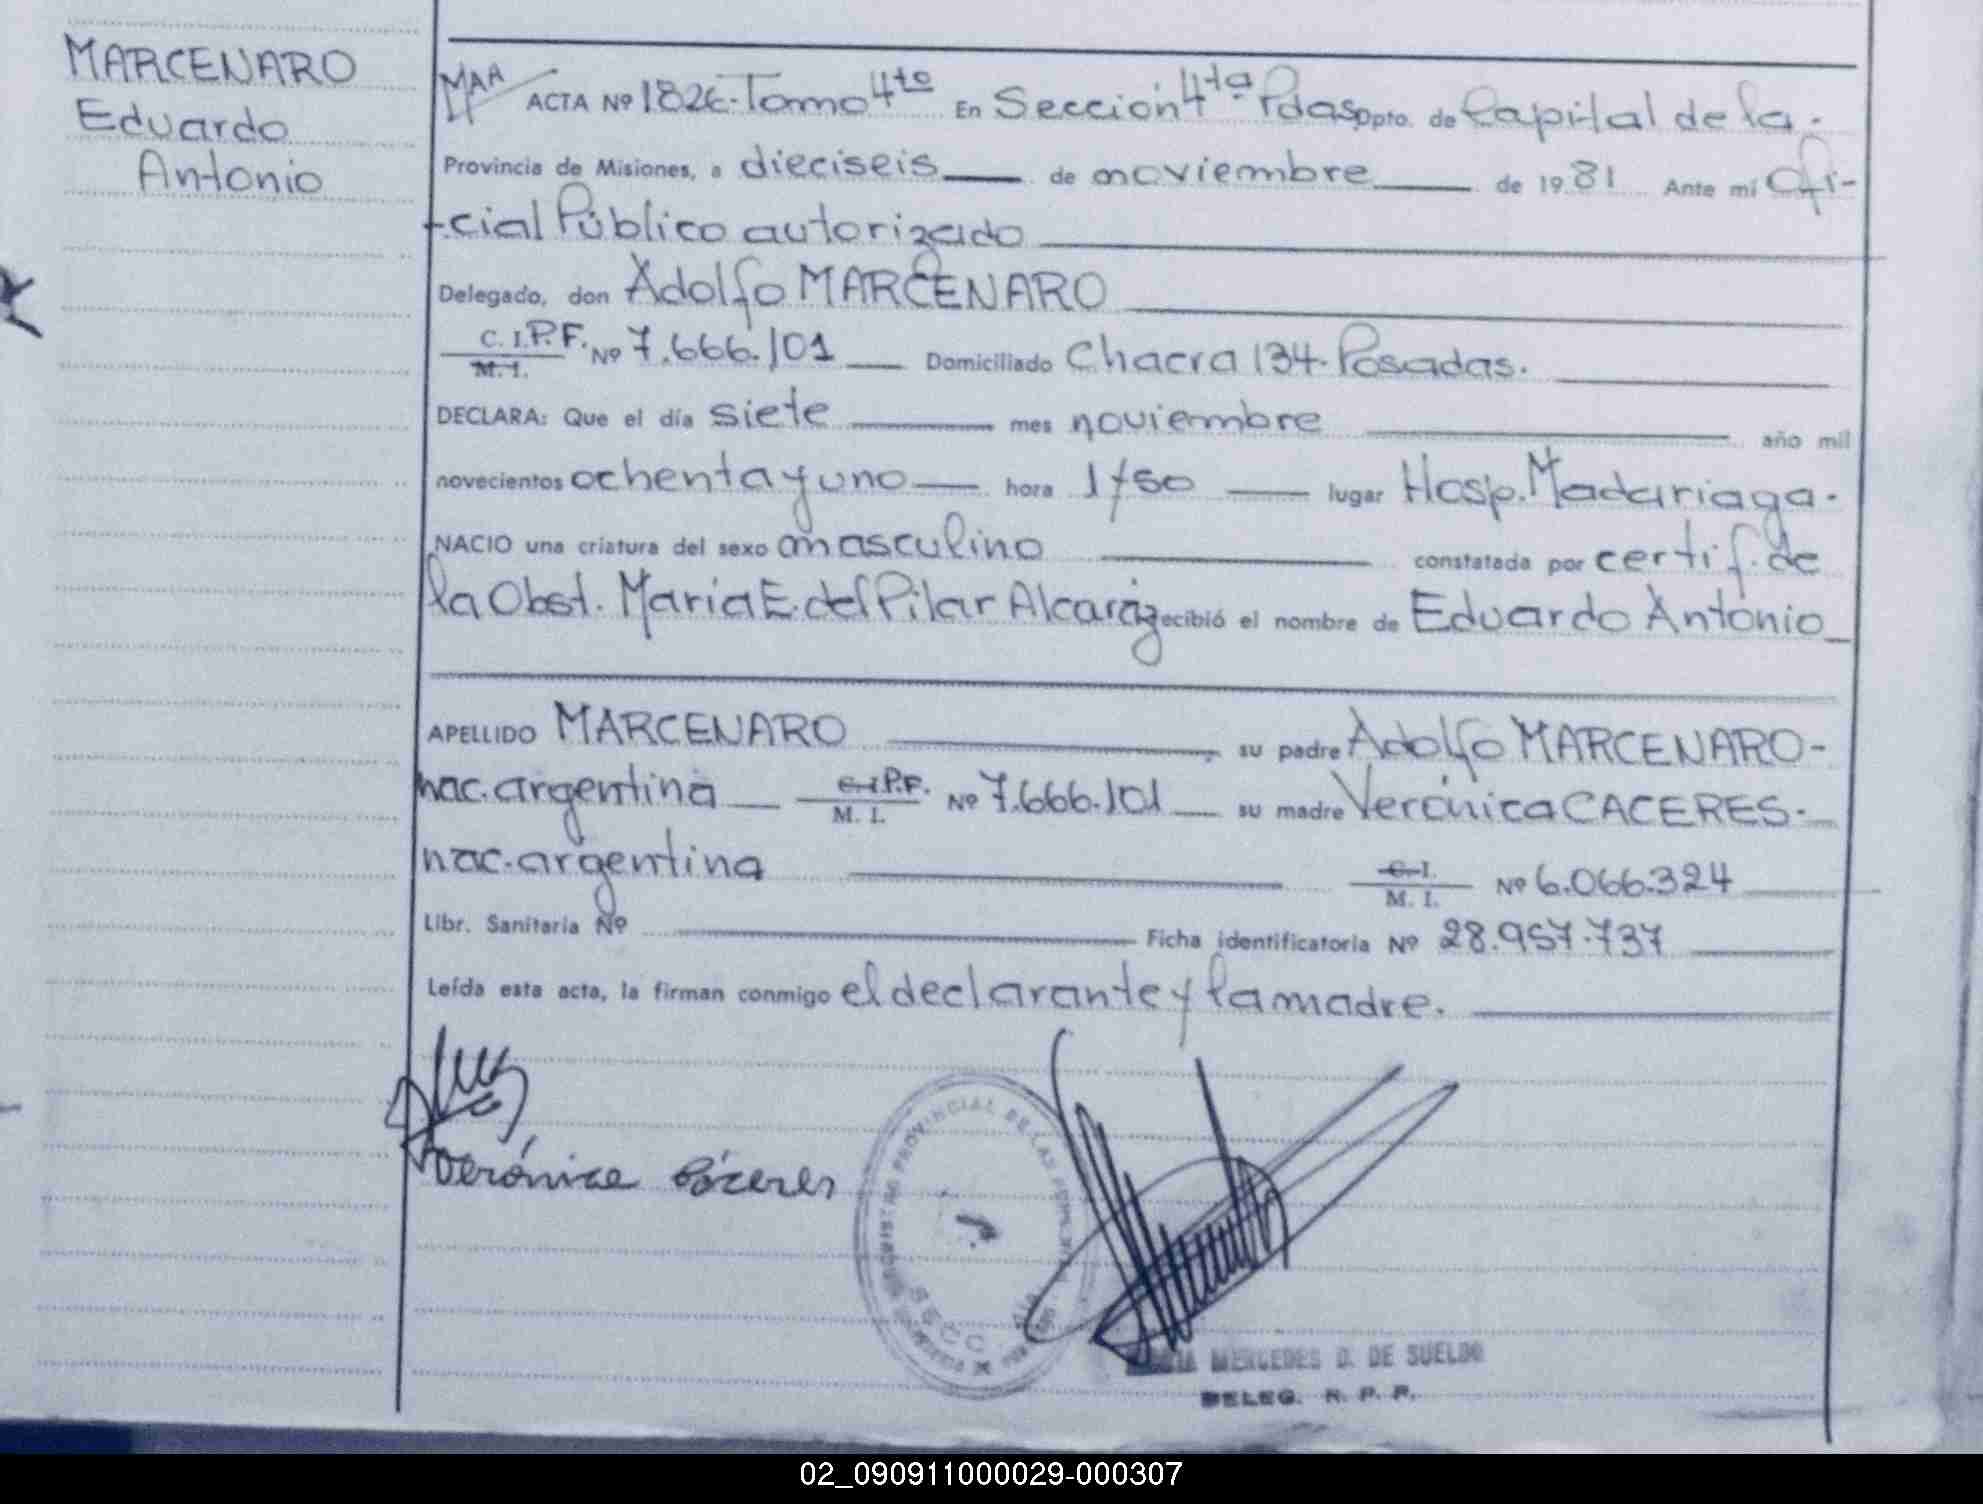 MARCENARO
Eduardo
Antonio
ACTA Nº 1826-Tomo 4to En Sección 4ta Pdas Dpto. de Capital de la.
Provincia de Misiones, a dieciseis de noviembre de 1981 Ante mí Ofi-
-cial Público autorizado
Delegado, don Adolfo MARCENARO
C. I.P.F. Nº 7.666.101 Domiciliado Chacra 134-Posadas.
M. I.
DECLARA: Que el día siete mes noviembre año mil
novecientos ochenta y uno hora 1 y 50 lugar Hosp. Madariaga.
NACIO una criatura del sexo masculino constatada por certif. de
la Obst. María E. del Pilar Alcaráz recibió el nombre de Eduardo Antonio
APELLIDO MARCENARO su padre Adolfo MARCENARO-
nac. argentina C.I.P.F. Nº 7.666.101 su madre Verónica CACERES.
M. I.
nac. argentina C. I. Nº 6.066.324
M. I.
Libr. Sanitaria Nº Ficha identificatoria Nº 28.957.737
Leída esta acta, la firman conmigo el declarante y la madre.
Verónica Cáceres
PROVINCIAL DE LAS PERSONAS
SECC.
MERCEDES D. DE SUELDO
DELEG. R. P. P.
02_090911000029-000307